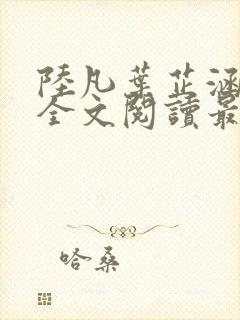 陸凡葉芷涵
全文閱讀最
哈桑